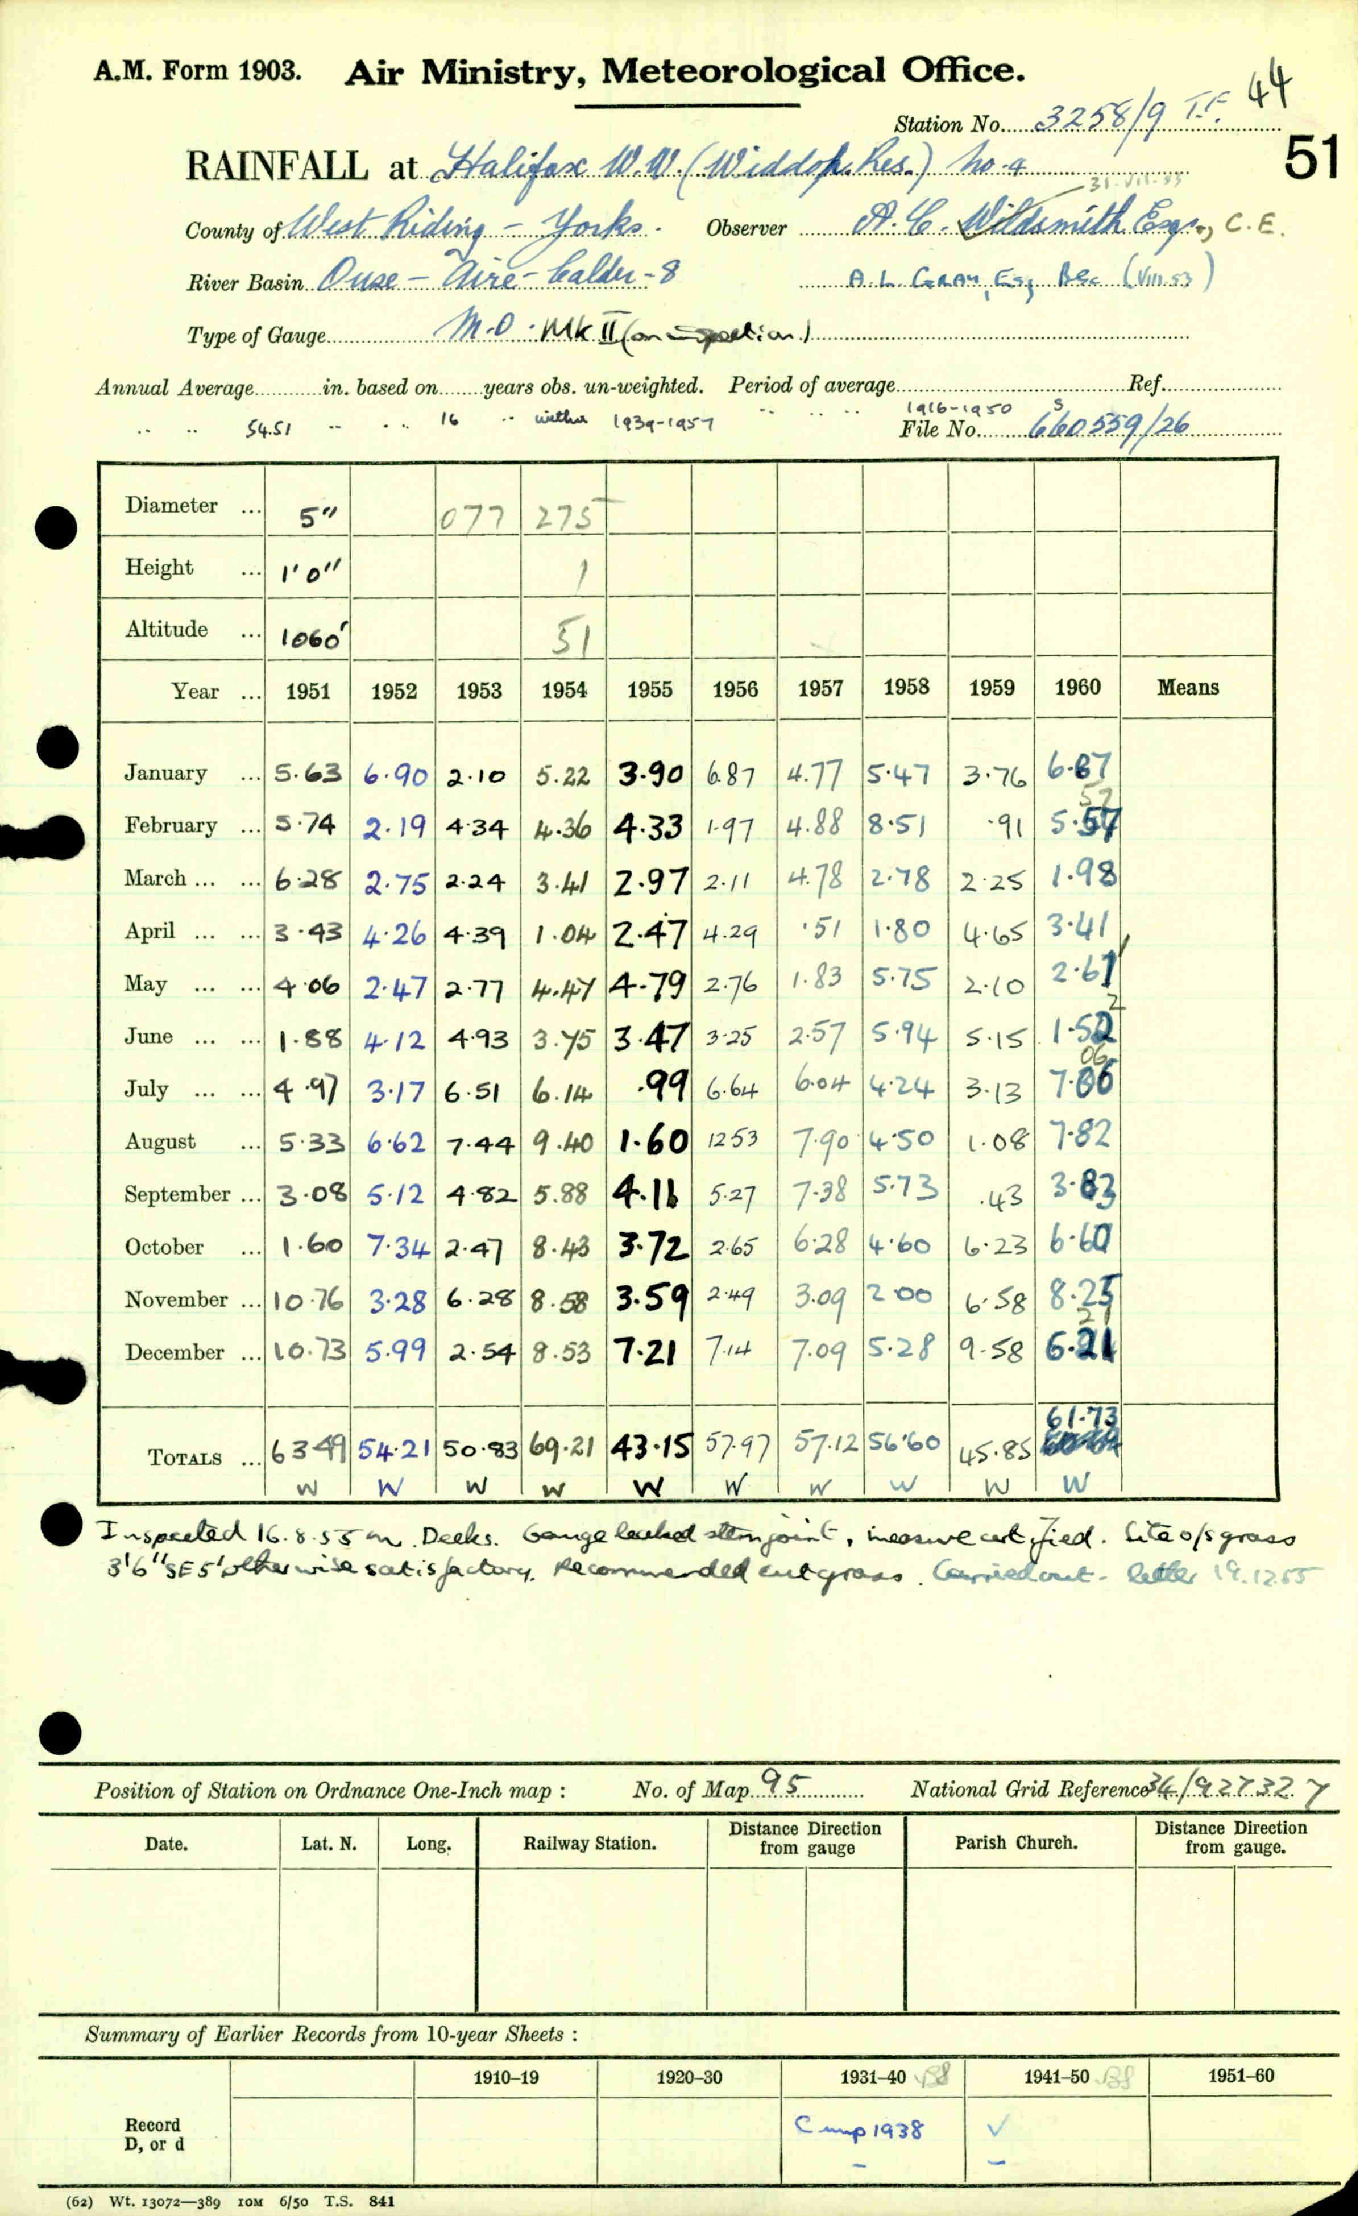 A.M. Form 1903. Air Ministry, Meteorological Office. 44
Station No. 3258/9 T.F.
51
RAINFALL at Halifax W.W. (Widdop Res.) No. 4
31.VII.53
County of West Riding - Yorks. Observer A. C. Wildsmith Esqr., C.E.
River Basin Ouse - Aire - Calder - 8 A.L. GRAY, Esq BSc (VIII.53)
Type of Gauge M.O. Mk II (on inspection)
Annual Average in. based on years obs. un-weighted. Period of average Ref.
" " 54.51 " " 16 " within 1939-1957 " " " " 1916-1950 S
File No. 660559/26
Diameter ... 5" 077 275
Height ... 1'0" 1
Altitude ... 1060' 51
Year ... 1951 1952 1953 1954 1955 1956 1957 1958 1959 1960 Means
January ... 5.63 6.90 2.10 5.22 3.90 6.87 4.77 5.47 3.76 6.87
February ... 5.74 2.19 4.34 4.36 4.33 1.97 4.88 8.51 .91 5.57 52
March ... ... 6.28 2.75 2.24 3.41 2.97 2.11 4.78 2.78 2.25 1.98
April ... ... 3.43 4.26 4.39 1.04 2.47 4.29 .51 1.80 4.65 3.41
May ... ... 4.06 2.47 2.77 4.47 4.79 2.76 1.83 5.75 2.10 2.61 1
June ... ... 1.88 4.12 4.93 3.75 3.47 3.25 2.57 5.94 5.15 1.52 2
July ... ... 4.97 3.17 6.51 6.14 .99 6.64 6.04 4.24 3.13 7.06 06
August ... 5.33 6.62 7.44 9.40 1.60 12.53 7.90 4.50 1.08 7.82
September ... 3.08 5.12 4.82 5.88 4.11 5.27 7.38 5.73 .43 3.83
October ... 1.60 7.34 2.47 8.43 3.72 2.65 6.28 4.60 6.23 6.60
November ... 10.76 3.28 6.28 8.58 3.59 2.49 3.09 2.00 6.58 8.25
December ... 10.73 5.99 2.54 8.53 7.21 7.14 7.09 5.28 9.58 6.21 21
TOTALS ... 63.49 54.21 50.83 69.21 43.15 57.97 57.12 56.60 45.85 61.73
W W W W W W W W W W
Inspected 16.8.55 Mr. Deeks. Gauge leaked stem joint, measure certified. Site o/s grass
3'6" SE 5' otherwise satisfactory. Recommended cut grass. Carried out - letter 19.12.55
Position of Station on Ordnance One-Inch map : No. of Map 95 National Grid Reference 34/927327
Date. Lat. N. Long. Railway Station. Distance from gauge Direction Parish Church. Distance from gauge. Direction
Summary of Earlier Records from 10-year Sheets :
1910–19 1920–30 1931–40 1941–50 1951–60
Record
D, or d
Comp 1938 ✓
– –
(62) Wt. 13072—389 10M 6/50 T.S. 841